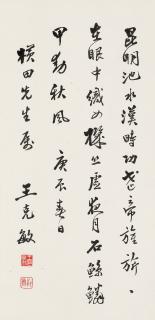 昆明池水漢時功武帝旌旂
在眼中織女機絲虛夜月石鯨鱗
甲動秋風 庚辰春日
横田先生属
王克敏